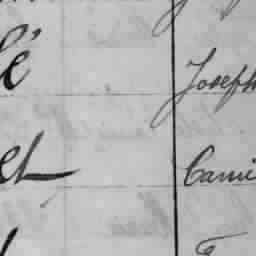 é Joseph
et Cami